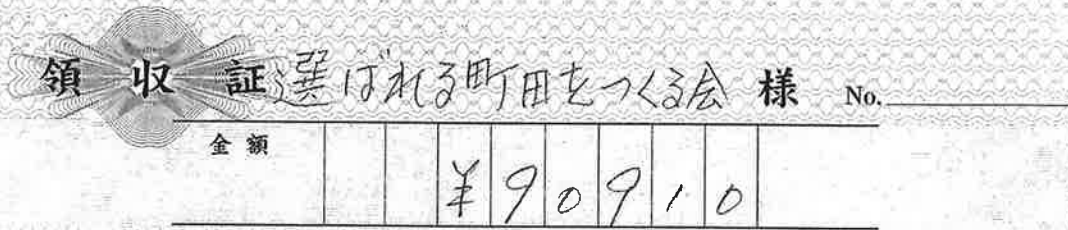 領収証 選ばれる町田をつくる会 様 No.
金額 ¥90910